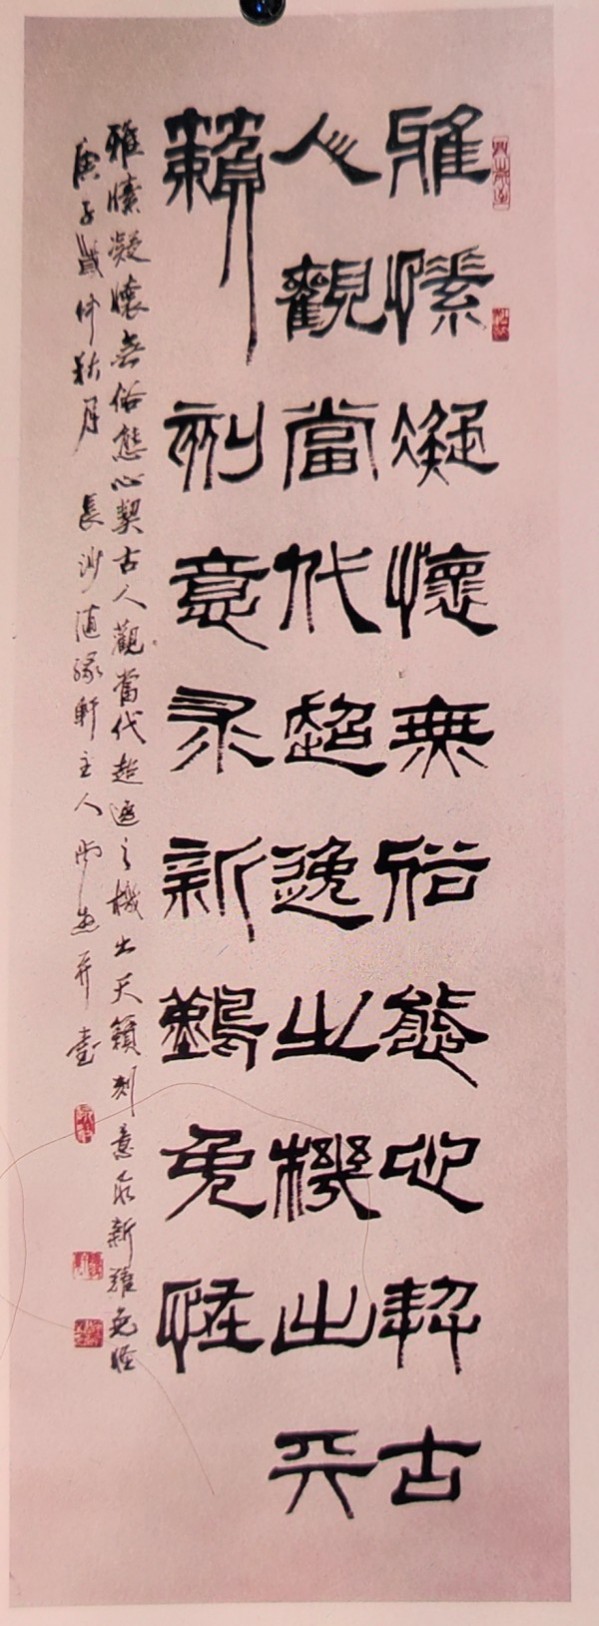 雅懆凝懷無俗態心契古
人觀當代超逸之機出天
籟刻意求新難免怪
雅懆凝懷無俗態心契古人觀當代超逸之機出天籟刻意求新難免怪
庚子歲仲秋月 長沙随緣軒主人 并書